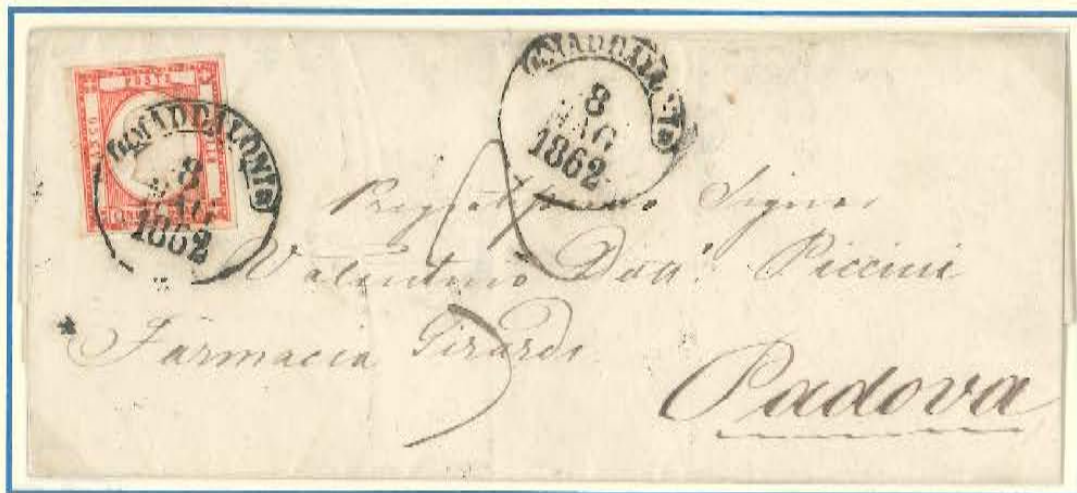 POSTE
MADDALONI
8
MAG
1862
MADDALONI
8
MAG
1862
Signor
Valentino Dott. Piccini
Farmacia Girardi
Padova